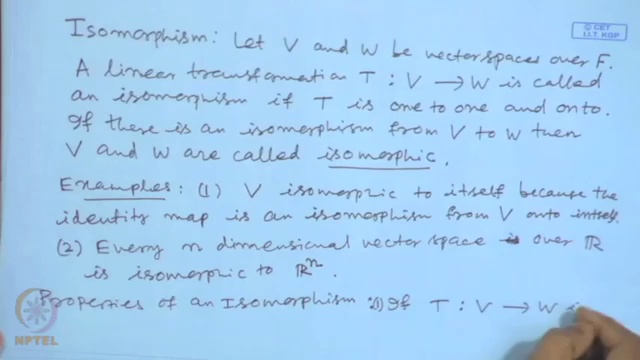 © CET
I.I.T. KGP
Isomorphism: Let V and W be vector spaces over F.
A linear transformation T : V → W is called
an isomorphism if T is one to one and onto.
If there is an isomorphism from V to W then
V and W are called isomorphic.
Examples: (1) V isomorphic to itself because the
identity map is an isomorphism from V onto itself.
(2) Every n dimensional vector space over ℝ
is isomorphic to ℝⁿ.
Properties of an Isomorphism: (1) If T : V → W i
NPTEL